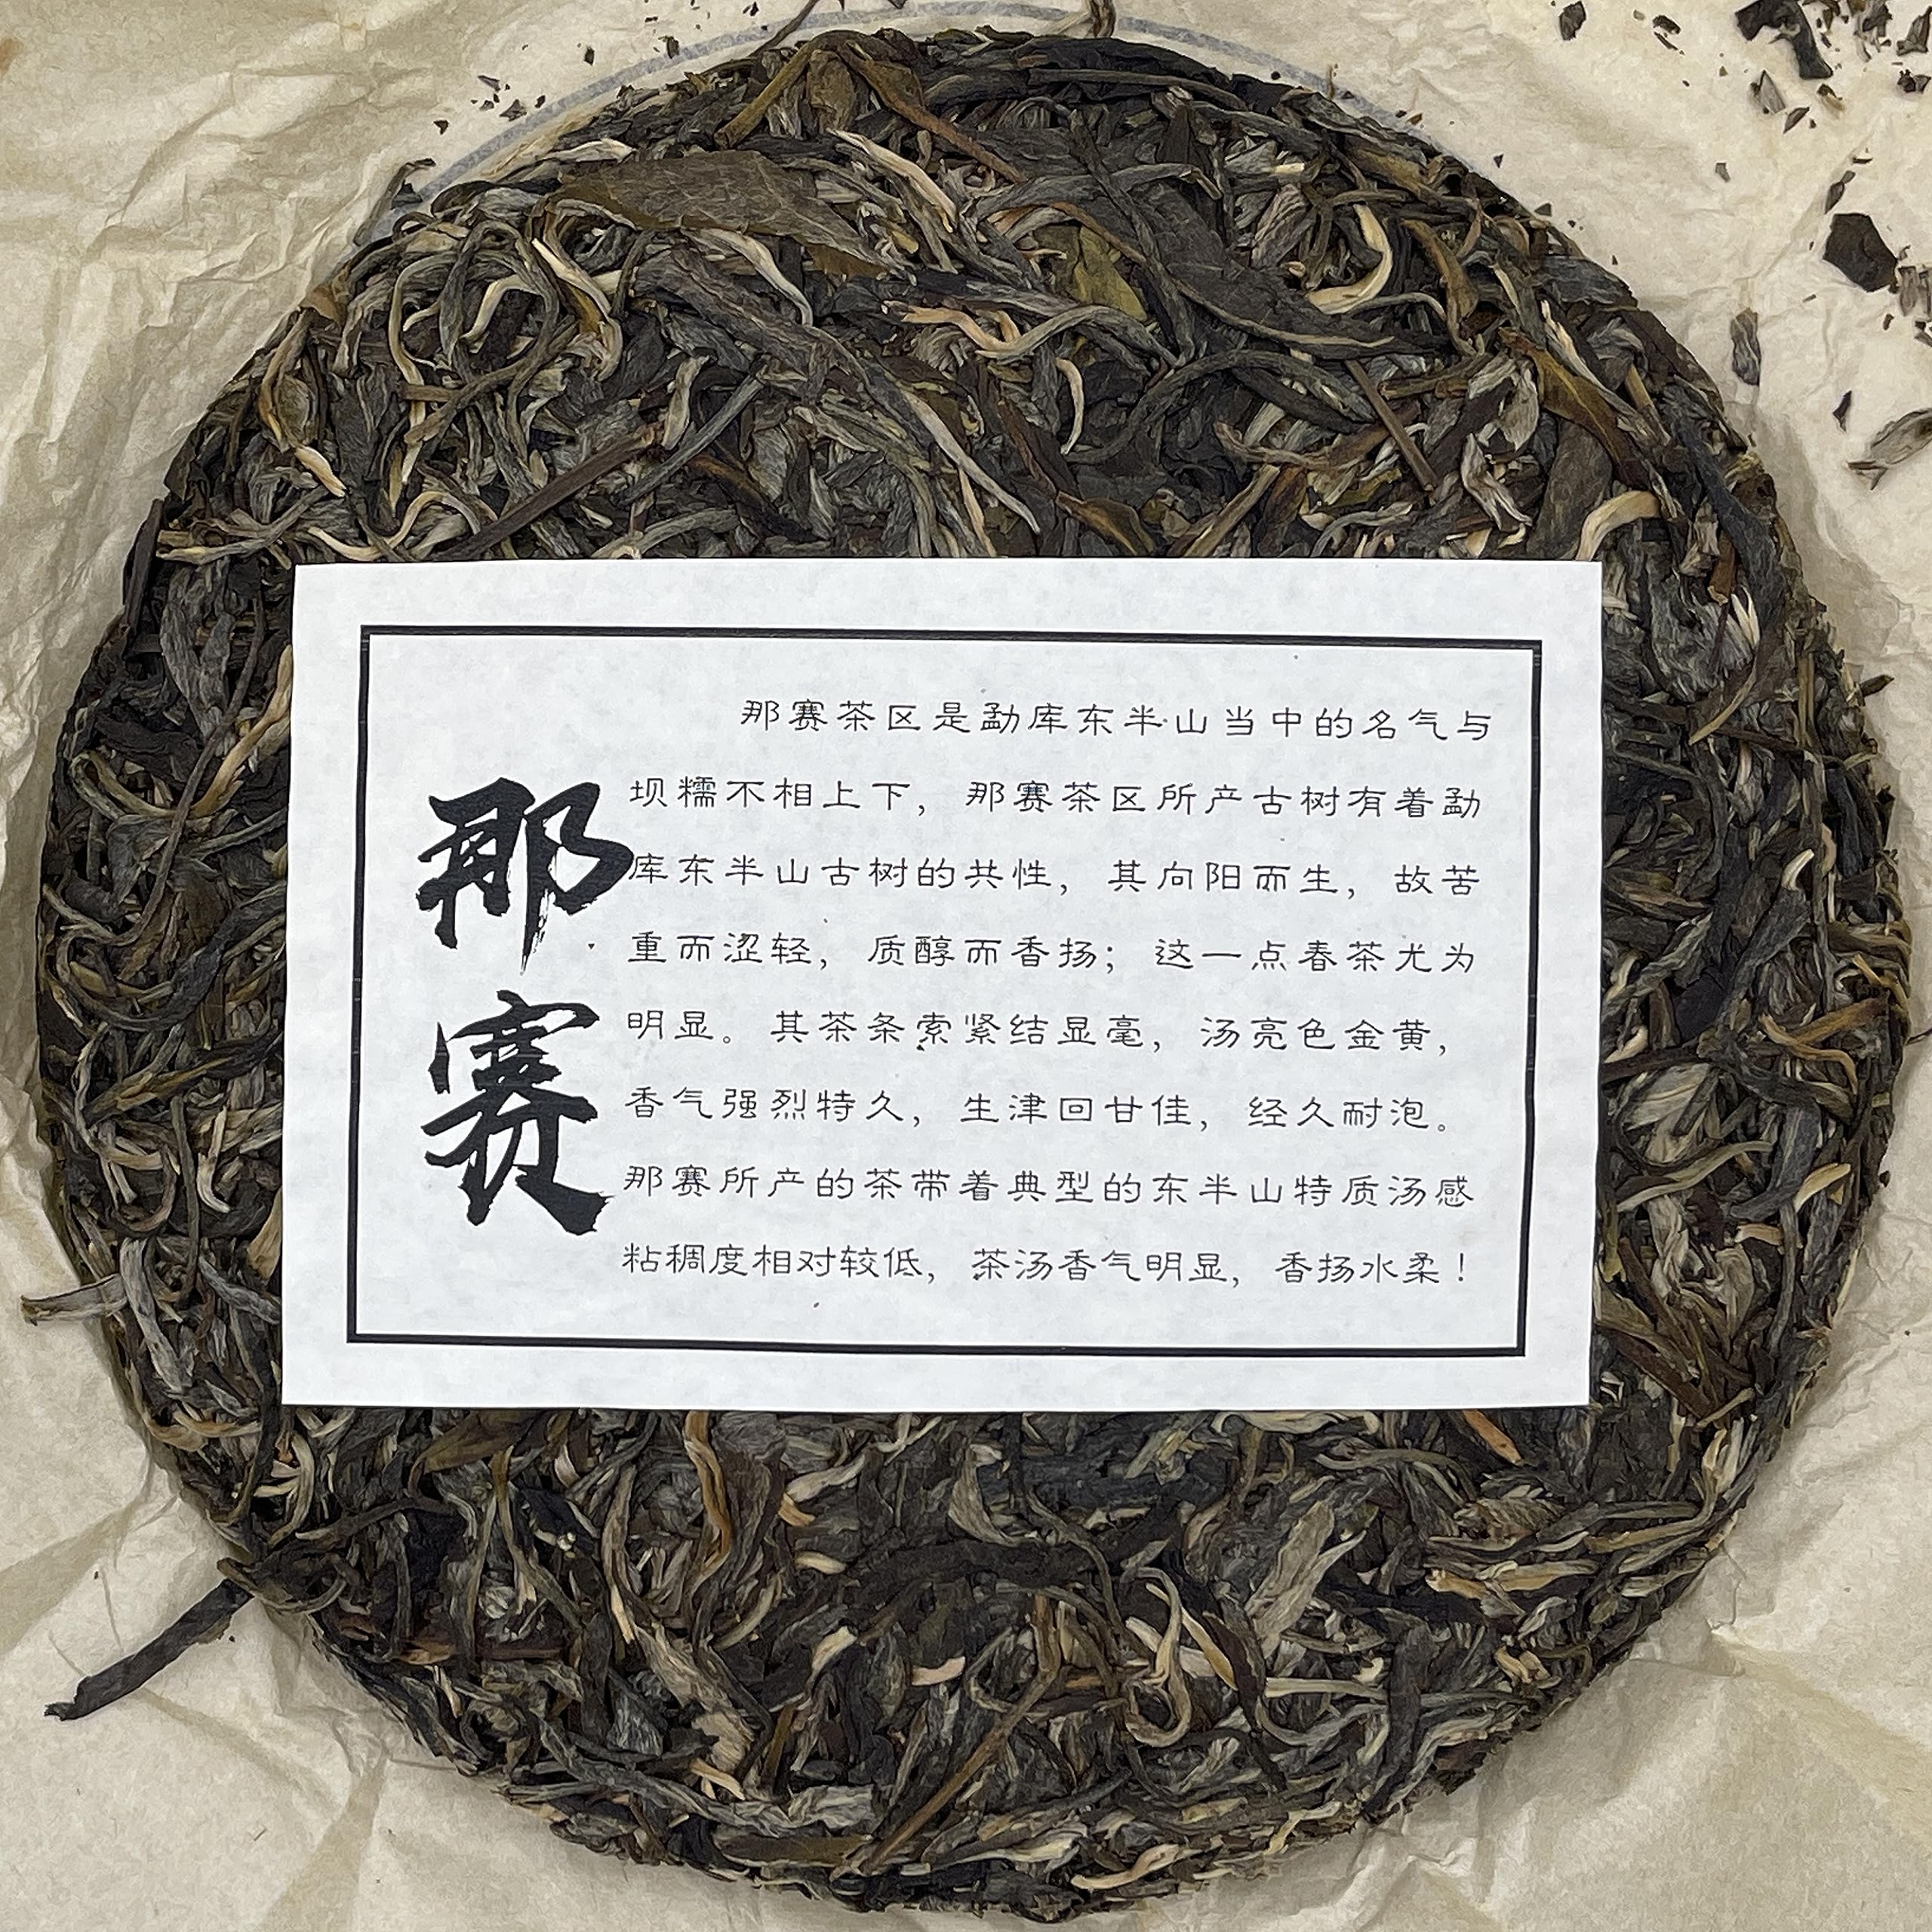 那赛
那赛茶区是勐库东半山当中的名气与
坝糯不相上下，那赛茶区所产古树有着勐
库东半山古树的共性，其向阳而生，故苦
重而涩轻，质醇而香扬；这一点春茶尤为
明显。其茶条索紧结显毫，汤亮色金黄，
香气强烈特久，生津回甘佳，经久耐泡。
那赛所产的茶带着典型的东半山特质汤感
粘稠度相对较低，茶汤香气明显，香扬水柔！